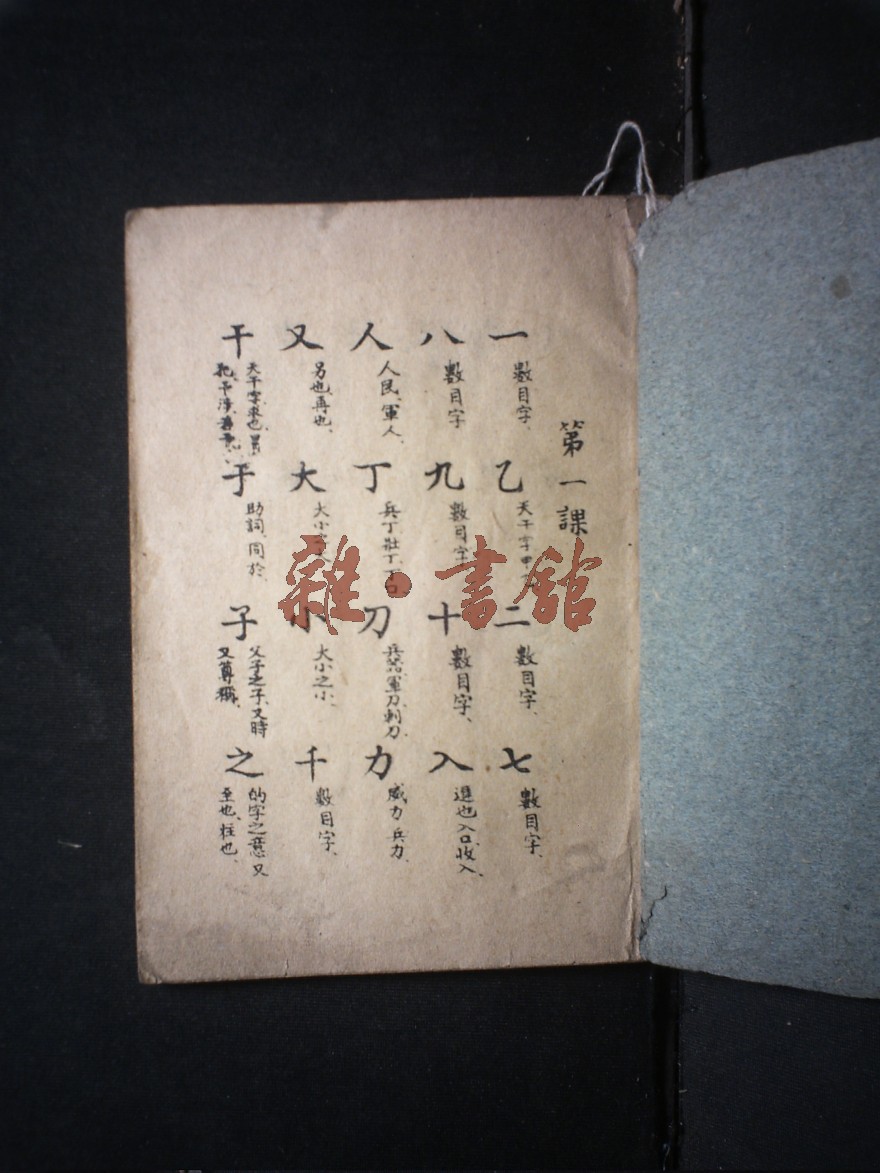 第一課
一 數目字、
乙 天干字甲
二 數目字、
七 數目字、
八 數目字
九 數目字
十 數目字、
入 進也、入口、收入、
人 人民、軍人、
丁 兵丁壯丁丁口
刀 兵器、軍刀、刺刀、
力 威力、兵力、
又 另也、再也、
大 大小之大
小 大小之小、
千 數目字、
干 天干字、求也、
于 助詞、同於、
子 父子之子、又時
又尊稱、
之 的字之意又
至也、往也、
雜·書館